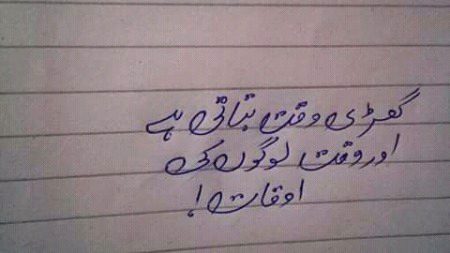 گھڑی وقت بتاتی ہے
اور وقت لوگوں کی
اوقات!